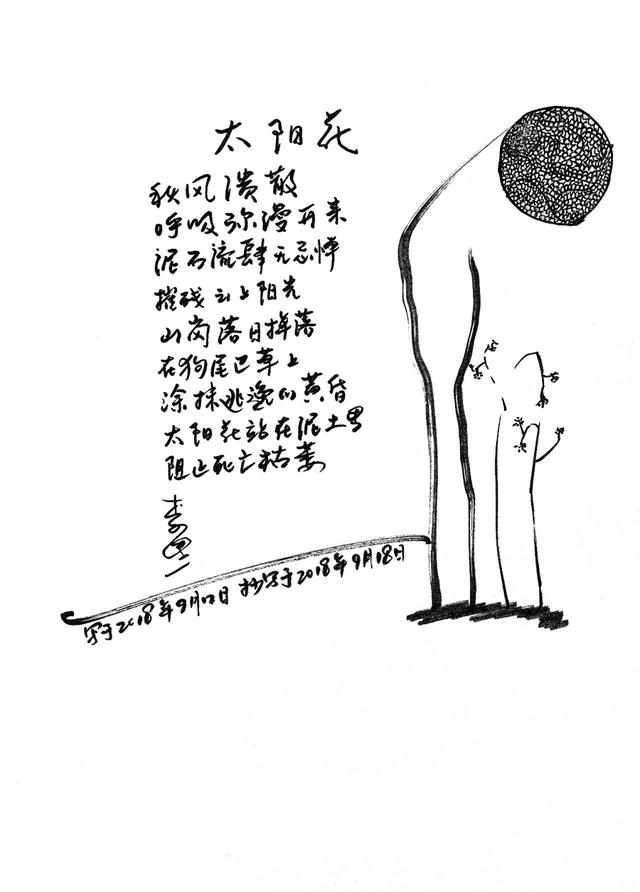 太阳花
秋风溃散
呼吸弥漫开来
泥石流肆无忌惮
摧残云上阳光
山岗落日掉落
在狗尾巴草上
涂抹逃逸的黄昏
太阳花站在泥土里
阻止死亡枯萎
写于2018年9月17日 抄写于2018年9月18日